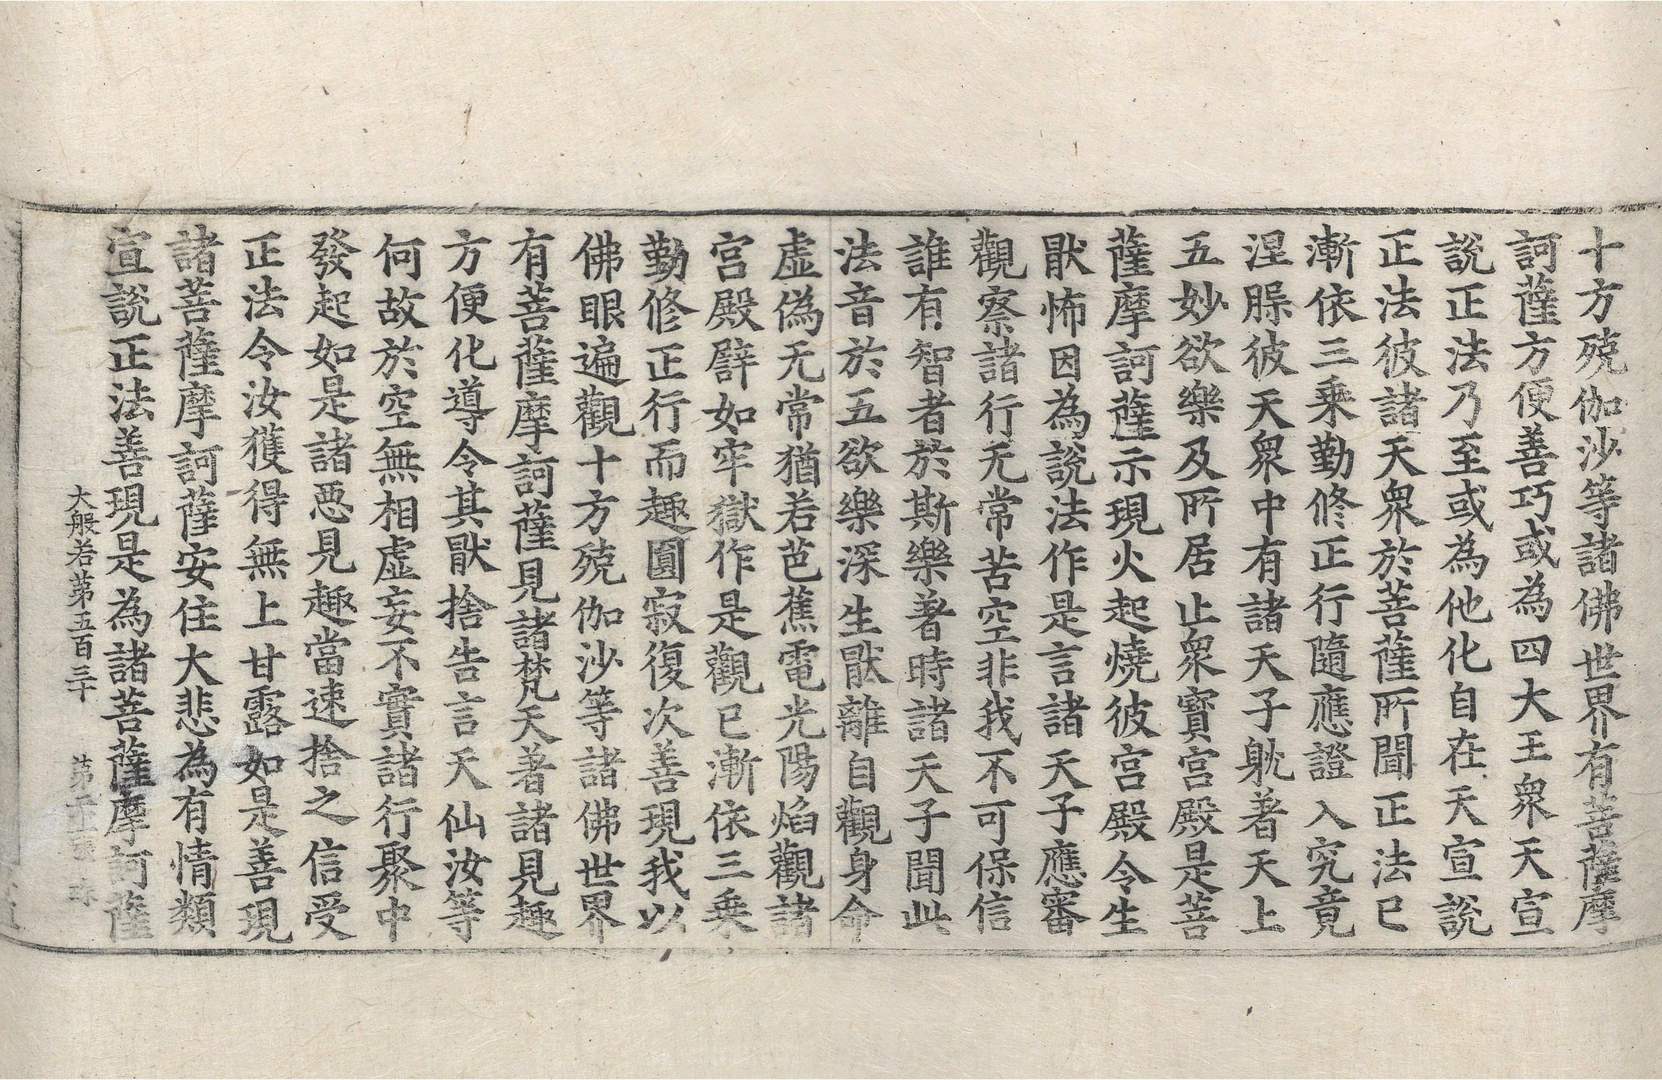 十方殑伽沙等諸佛世界有菩薩摩
訶薩方便善巧或為四大王衆天宣
說正法乃至或為他化自在天宣說
正法彼諸天衆於菩薩所聞正法已
漸依三乘勤修正行隨應證入究竟
涅槃彼天衆中有諸天子躭著天上
五妙欲樂及所居止衆寳宫殿是菩
薩摩訶薩示現火起燒彼宫殿令生
猒怖因為說法作是言諸天子應審
觀察諸行无常苦空非我不可保信
誰有智者於斯樂著時諸天子聞此
法音於五欲樂深生猒離自觀身命
虚偽无常猶若芭蕉電光陽焰觀諸
宫殿譬如牢獄作是觀已漸依三乘
勤修正行而趣圓寂復次善現我以
佛眼遍觀十方殑伽沙等諸佛世界
有菩薩摩訶薩見諸梵天著諸見趣
方便化導令其猒捨告言天仙汝等
何故於空無相虚妄不實諸行聚中
發起如是諸惡見趣當速捨之信受
正法令汝獲得無上甘露如是善現
諸菩薩摩訶薩安住大悲為有情類
宣說正法善現是為諸菩薩摩訶薩
大般若第五百三十 第 張